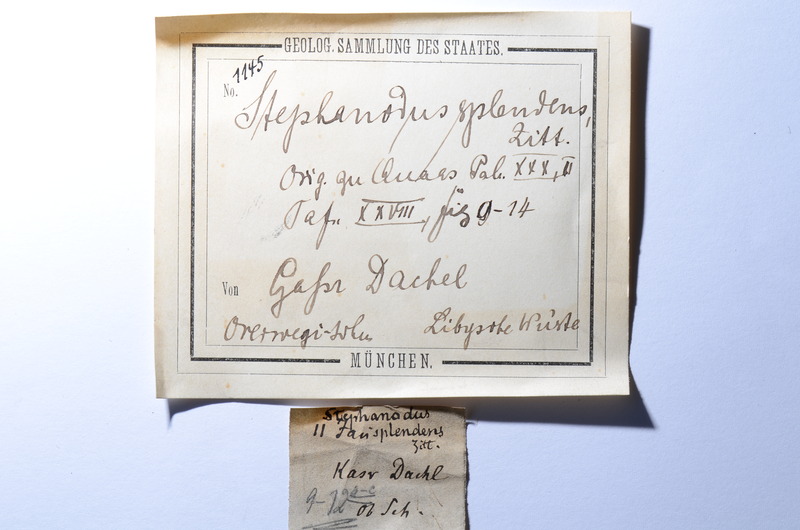 GEOLOG. SAMMLUNG DES STAATES.
No. 1145
Stephanodus splendens,
Zitt.
Orig. zu Quaas Pal. XXX, II
Taf. XXVIII, fig 9-14
Von Gassr Dachel
Overwegi-Schn Libysche Wüste
MÜNCHEN.
Stephanodus
11 splendens
Zitt.
Kasr Dachl
Ob Sch.